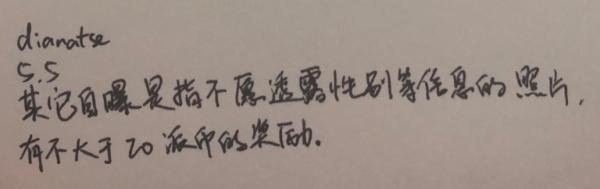 dianatse
5.5
其它自曝是指不愿透露性别等信息的照片,
有不大于20派印的奖励.